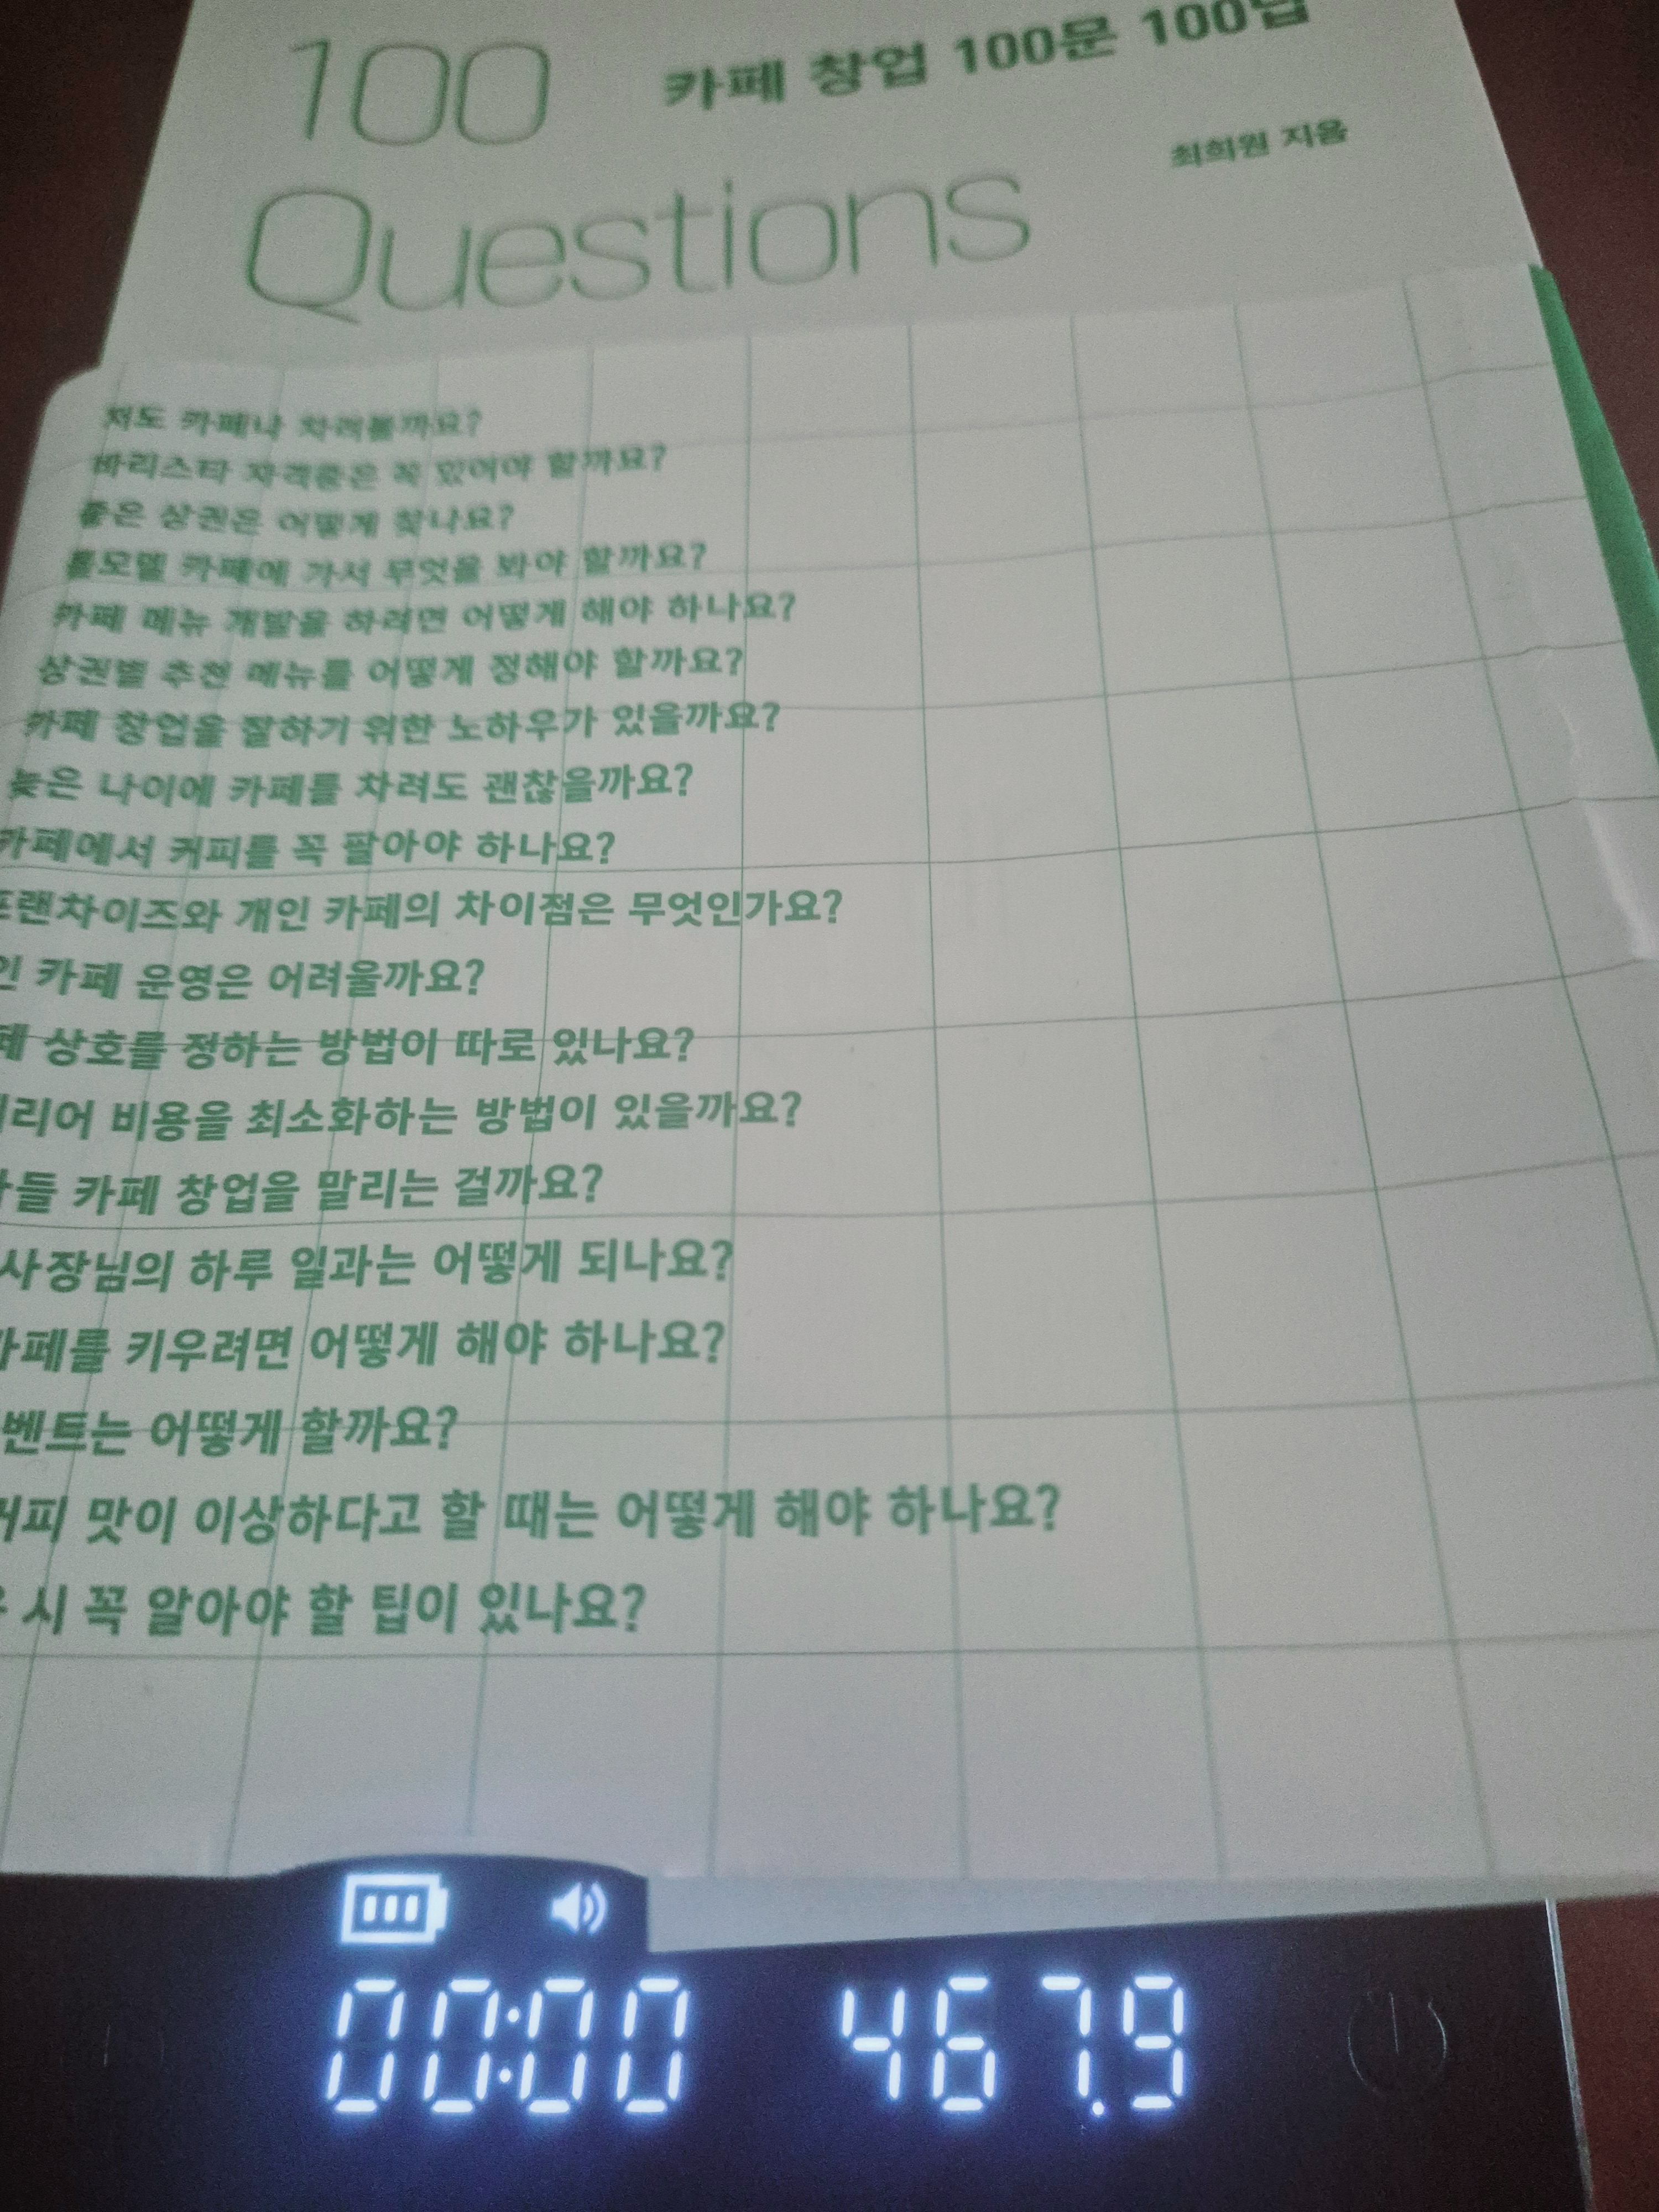 100
카페 창업 100문 100답
최희원 지음
Questions
저도 카페나 차려볼까요?
바리스타 자격증은 꼭 있어야 할까요?
좋은 상권은 어떻게 찾나요?
롤모델 카페에 가서 무엇을 봐야 할까요?
카페 메뉴 개발을 하려면 어떻게 해야 하나요?
상권별 추천 메뉴를 어떻게 정해야 할까요?
카페 창업을 잘하기 위한 노하우가 있을까요?
늦은 나이에 카페를 차려도 괜찮을까요?
카페에서 커피를 꼭 팔아야 하나요?
프랜차이즈와 개인 카페의 차이점은 무엇인가요?
카페 운영은 어려울까요?
상호를 정하는 방법이 따로 있나요?
비용을 최소화하는 방법이 있을까요?
카페 창업을 말리는 걸까요?
사장님의 하루 일과는 어떻게 되나요?
카페를 키우려면 어떻게 해야 하나요?
벤트는 어떻게 할까요?
커피 맛이 이상하다고 할 때는 어떻게 해야 하나요?
시 꼭 알아야 할 팁이 있나요?
00:00 467.9